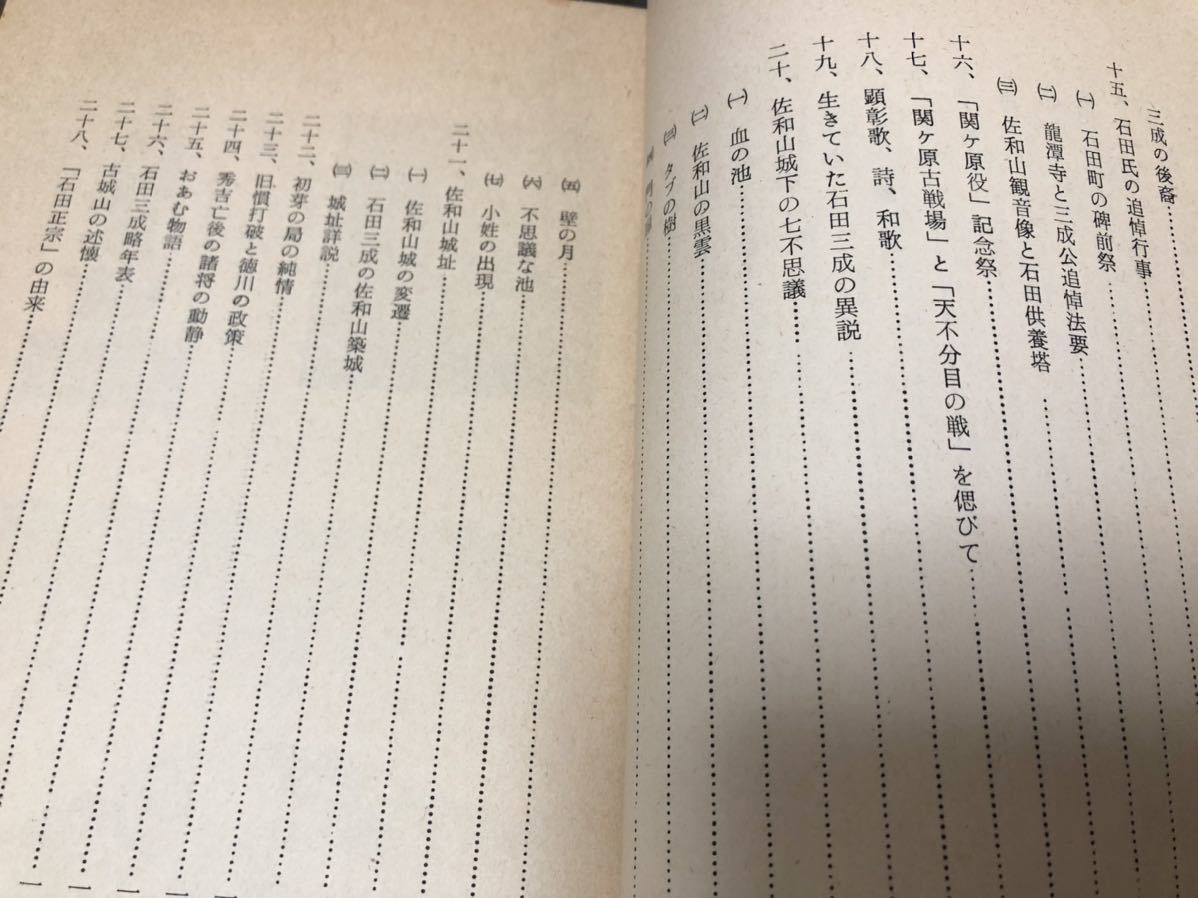 三成の後裔
十五、石田氏の追悼行事
㈠ 石田町の碑前祭
㈡ 龍潭寺と三成公追悼法要
㈢ 佐和山観音像と石田供養塔
十六、「関ケ原役」記念祭
十七、「関ケ原古戦場」と「天下分目の戦」を偲びて
十八、顕彰歌、詩、和歌
十九、生きていた石田三成の異説
二十、佐和山城下の七不思議
㈠ 血の池
㈡ 佐和山の黒雲
㈢ タブの樹
㈣
㈤ 壁の月
㈥ 不思議な池
㈦ 小姓の出現
二十一、佐和山城址
㈠ 佐和山城の変遷
㈡ 石田三成の佐和山築城
㈢ 城址詳説
二十二、初芽の局の純情
二十三、旧慣打破と徳川の政策
二十四、秀吉亡後の諸将の動静
二十五、おあむ物語
二十六、石田三成略年表
二十七、古城山の述懐
二十八、「石田正宗」の由来